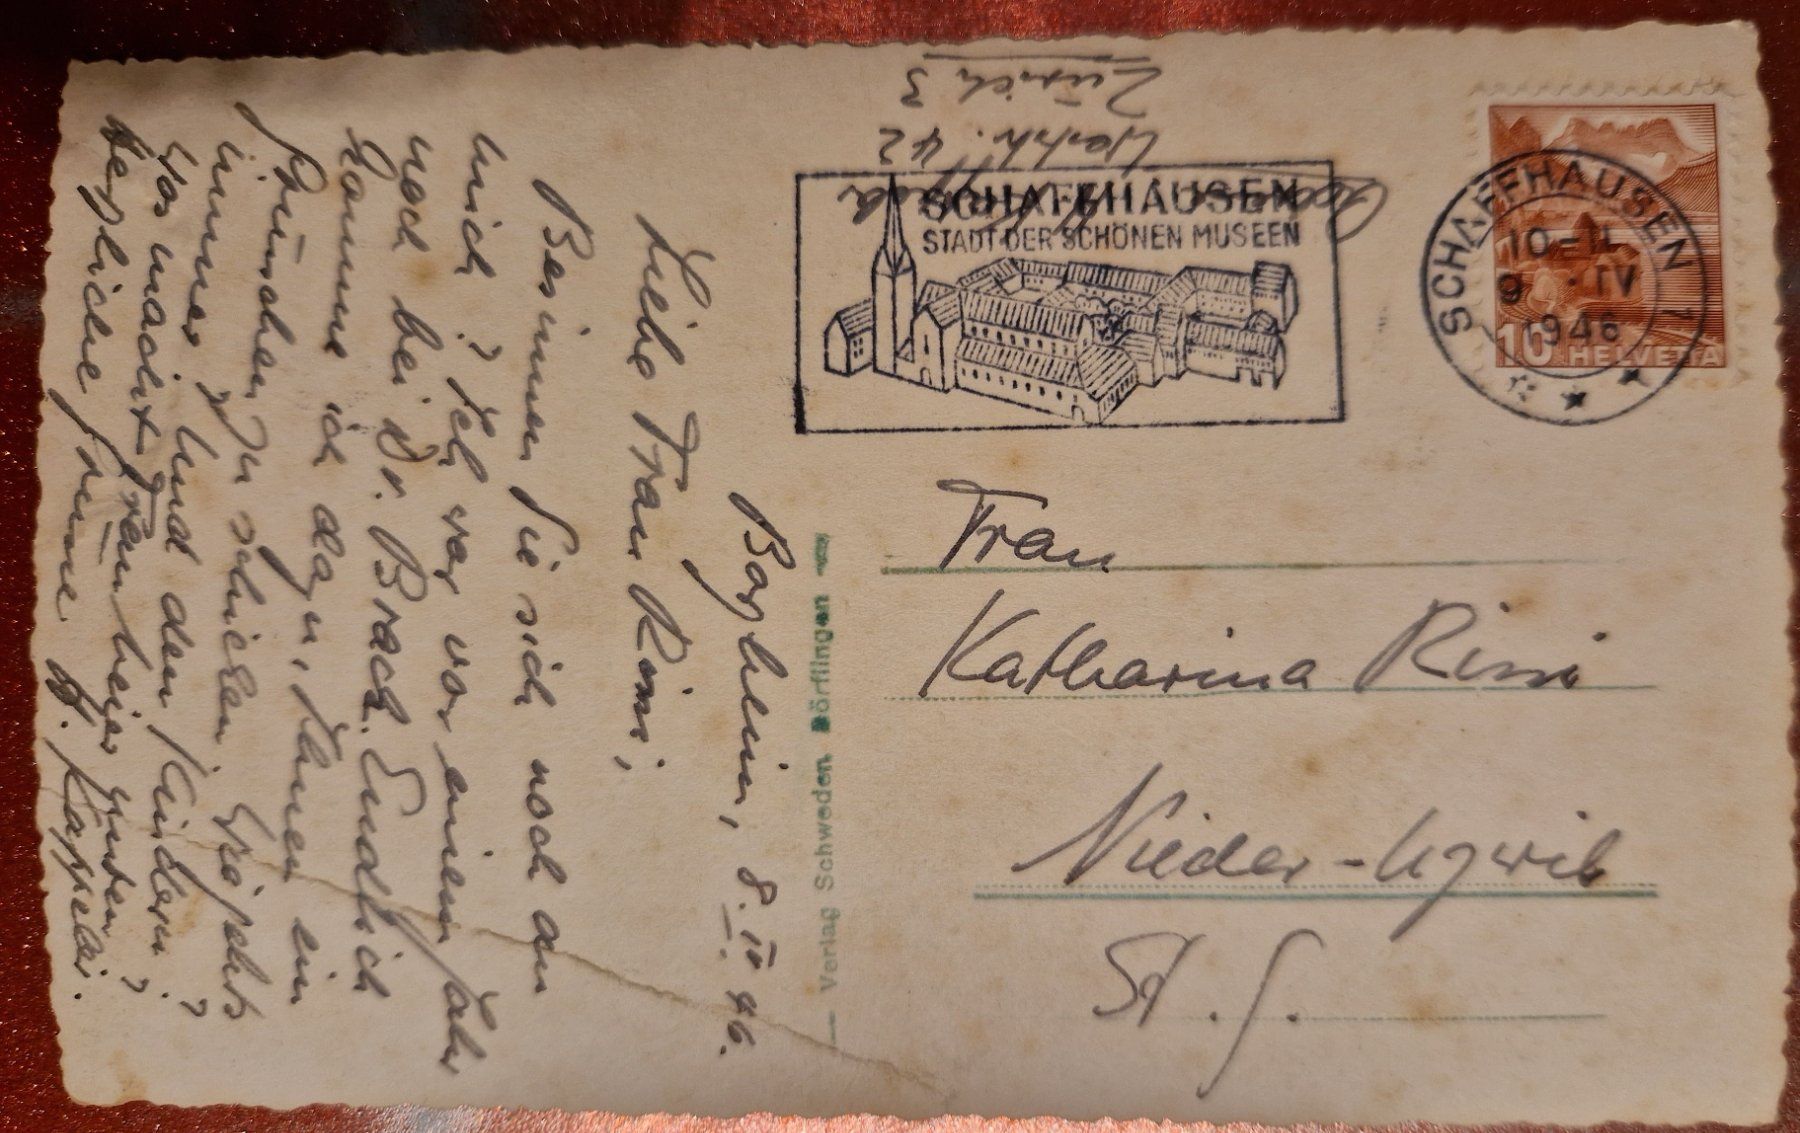 Barzheim, 8. IV. 46.
Liebe Frau Rissi,
Besinnen Sie sich noch an
mich? Ich war vor einem Jahr
noch bei Dr. Brack. Endlich
komme ich dazu, Ihnen ein
Grüsschen zu schicken. Wie geht's
immer? Und den Kindern?
Was macht
herzliche Grüsse H. Kappeler.
Verlag Schweden Dörflingen
Westr. 42
Zürich 3
SCHAFFHAUSEN
STADT DER SCHÖNEN MUSEEN
SCHAFFHAUSEN 1
10-11
9. IV
1946
10 HELVETIA
Frau
Katharina Rissi
Nieder-Uzwil
St. G.